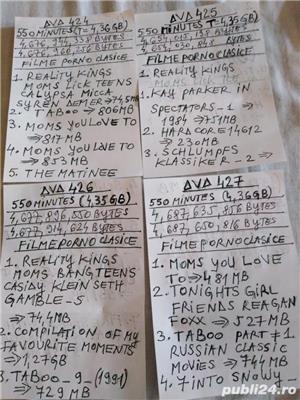 AVA 424
550 MINUTES (T=4,36GB)
4,676, 968, 256 BYTES
FILME PORNO CLASICE
1. REALITY KINGS
MOMS LICK TEENS
CALYPSA MICCA
SYREN DEMER ⇒ 745MB
2. TABOO ⇒ 806MB
3. MOMS YOU LOVE TO
⇒ 817 MB
4. MOMS YOU LOVE TO
⇒ 853 MB
5. THE MATINEE
AVA 425
550 MINUTES T=4,35GB)
FILME PORNO CLASICE
1. REALITY KINGS
1. KAY PARKER IN
SPECTATORS_1 ⇒
1984 ⇒ 75MB
2. HARDCORE 14612
⇒ 230MB
3. SCHLUMPFS
KLASSIKER - 2 ⇒
AVA 426
550 MINUTES (4,35GB)
4,677, 896, 550 BYTES
4,677, 914, 624 BYTES
FILME PORNO CLASICE
1. REALITY KINGS
MOMS BANG TEENS
CASIDY KLEIN SETH
GAMBLE_5
⇒ 74,4MB
2. COMPILATION OF MY
FAVOURITE MOMENTS
⇒ 1,27GB
3. TABOO_9_(1991)
⇒ 729 MB
AVA 427
550 MINUTES (4,36GB)
4, 687, 635, 856 BYTES
4, 687, 650, 816 BYTES
FILME PORNO CLASICE
1. MOMS YOU LOVE
TO ⇒ 481 MB
2. TONIGHTS GIRL
FRIENDS REAGAN
FOXX ⇒ 527 MB
3. TABOO PART #1
RUSSIAN CLASSIC
MOVIES ⇒ 744MB
4. 7 INTO SNOWY_
publi24.ro